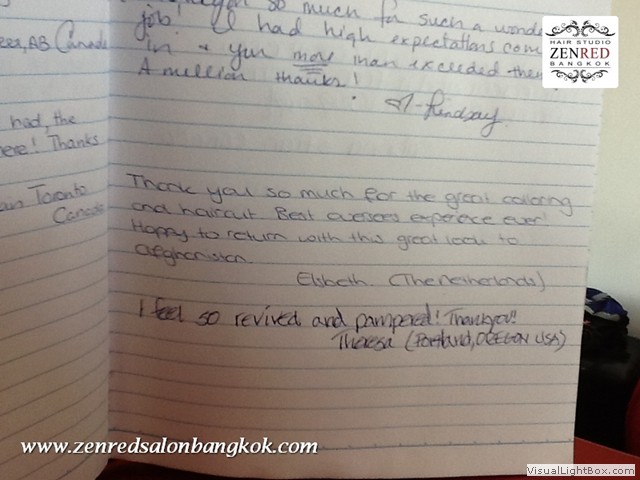 so much for such a wonde
job! I had high expectations com
in & you more than exceeded the
A million thanks!
♡ - Lindsay.
AB Canada
had, the
ere! Thanks
Toronto
Canada
Thank you so much for the great coloring
and haircut. Best overseas experience ever!
Happy to return with this great look to
Afghanistan.
Elsbeth. (The Netherlands)
I feel so revived and pampered! Thankyou!!
Theresa (Portland, OREGON USA)
HAIR STUDIO
ZENRED
BANGKOK
www.zenredsalonbangkok.com
VisualLightBox.com